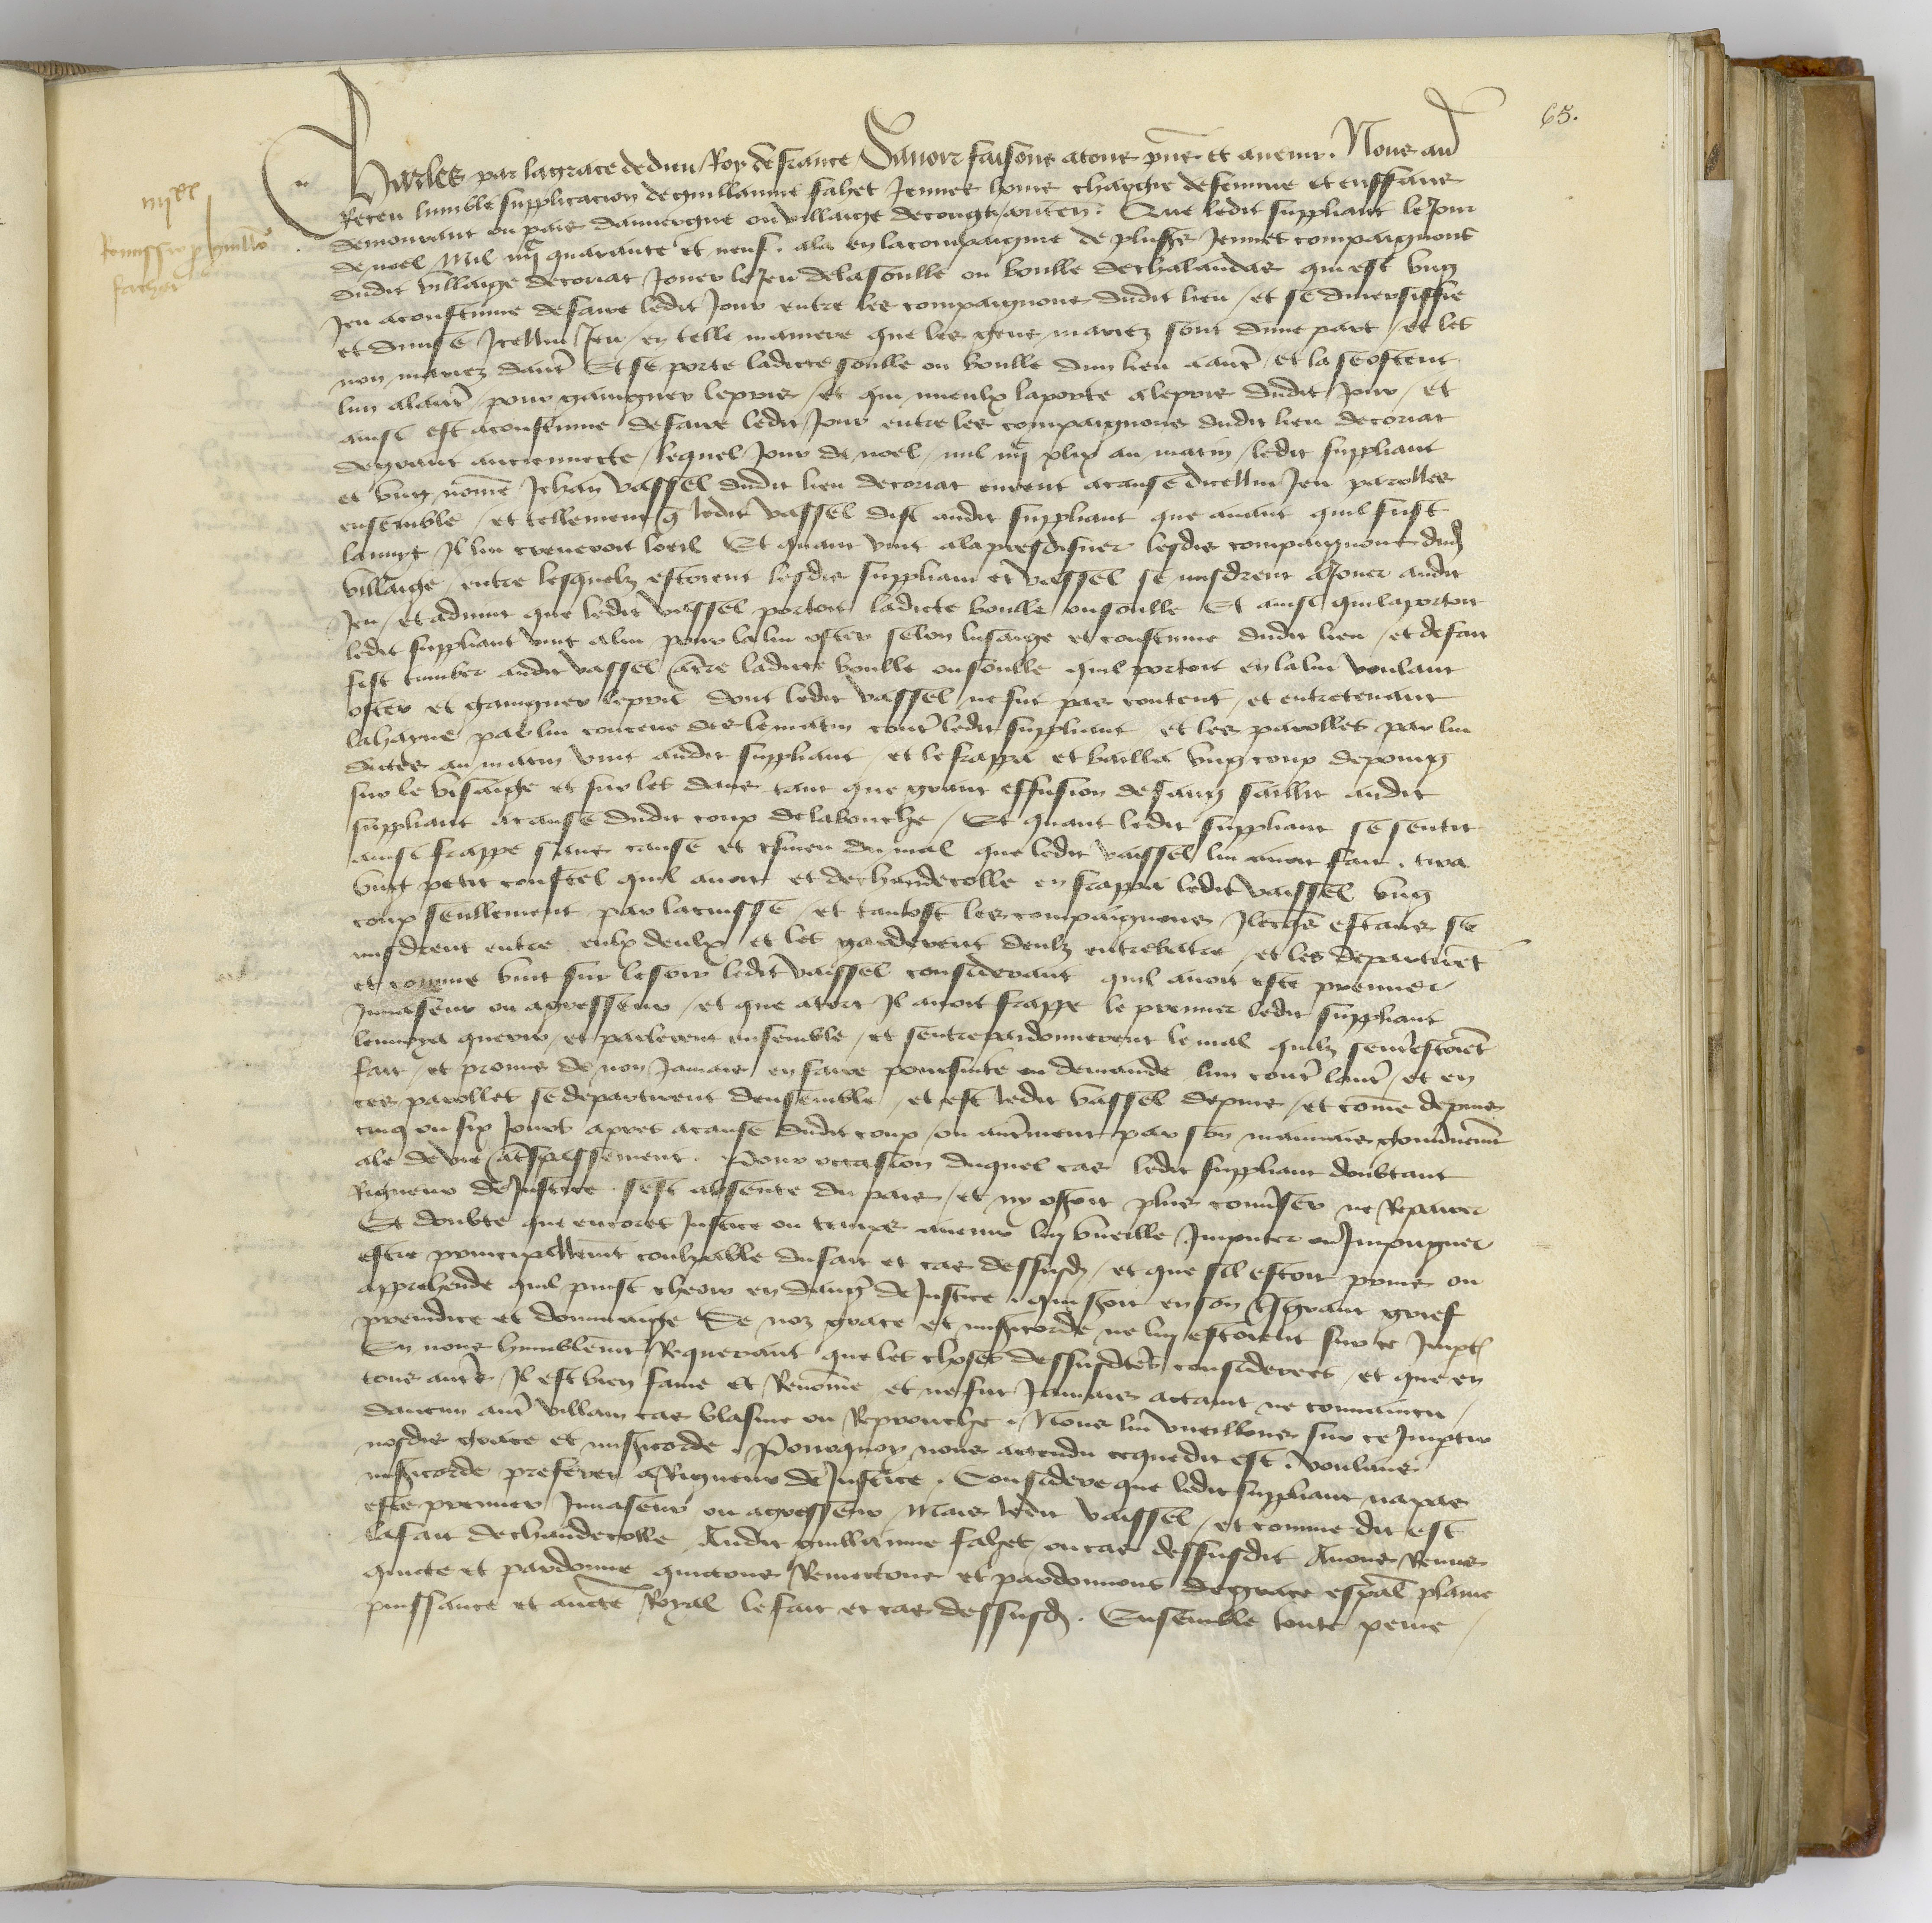 65.
Charles par la grace de dieu Roy de france Savoir faisons a tous pñs et avenir. Nous avõ
Receu lumble supplicacion de guillaume fahet Jeunes homs chargie de femme et enffans
demourant ou pais dauvergne ou villaige de
contenẽ. Que ledit suppliant le Jour
iiijxx
Remissio p guillo
fahet
de noel Mil iiijc quarante et neuf. ala en la compaignie de plus's Jeunes compaignons
dudit villaige de coriat Jouer le Jeu de la soulle ou boulle de chalandas qui est ung
Jeu acoustume de faire ledit Jour entre les compaignons dudit lieu / et se diversiffie
et divise Icellui Jeu / en telle maniere que les gens mariez sont dune part / et les
non mariez daut' Et se porte ladicte soulle ou boulle dun lieu a aut' / et la se ostent
lun a laut' / pour gaingner le pris / et qui mieulx la porte a le pris dudit Jour / et
ainsi est acoustume de faire ledit Jour entre les compaignons dudit lieu de coriat
de grant anciennecte / lequel Jour de noel / mil iiijc xlix au matin / ledit suppliant
et ung nõme Jehan vassel dudit lieu de coriat eurent a cause dicellui Jeu parolles
ensemble / et tellement q̃ ledit vassel dist audit suppliant que avant quil fust
la nuyt Il lui creveroit loeil Et quant vint a lapresdisner lesdis compaignons dud
villaige / entre lesquelz estoient lesdis suppliant et vassel se misdrent a Jouer audit
Jeu / et advint que ledit vassel portoit ladicte boulle ou soulle Et ainsi quil la portoit
ledit suppliant vint a lui pour la lui oster selon lusaige et coustume dudit lieu / et de fait
fist tumber audit vassel a t're ladicte boulle ou soulle quil portoit en la lui voulant
oster et gaingner le pris dont ledit vassel ne fut pas content / et entretenant
la hayne par lui conceue des le matin cont' ledit suppliant et les parolles par lui
dictes au matin vint audit suppliant / et le frappa et bailla ung coup de poing
sur le visaige et sur les dens tant que grant effusion de sang saillit audit
suppliant a cause dudit coup de la bouche / Et quant ledit suppliant se sentit
ainsi frappe sans cause et esmeu du mal que ledit vaissel lui avoit fait. tira
ung petit coustel quil avoit et de chaudecolle en frappa ledit vaissel ung
coup seullement par la cuisse / et tantost les compaignons Illecq̃s estans se
misdrent entre eulx deulx et les garderent deulz entrebatre / et les departirẽt
et comme vint sur le soir ledit vaissel considerant quil avoit este premier
Invaseur ou agresseur / et que a tort Il avoit frappe le premier ledit suppliant
lenvoya querir / et parlerent ensemble / et sentrepardonnerent le mal quilz sentr'estoiẽt
fait / et promis de non Jamais en faire poursuite ou demande lun cont' laut' / et en
ces parolles se departirent densemble / et est ledit vassel depuis / et cõme depuis
cinq ou six Jours apres a cause dudit coup / ou aut'ment par son mauvais gouvernemt
ale de vie a t'spassement. Pour occasion duquel cas ledit suppliant doubtant
Rigueur de Justice sest absente du pais / et ny ostoit plus cõverser ne Repairer
Et doubte que encores Justice ou temps avenir luy vueille Imputer ou Impougner
estre principallemt coulpable du fait et cas dessusd / et que sil estoit prins ou
apprehende quil puist cheoir en dang' de Justice. qui seroit en son t'sgrant grief
preiudice et dommaige Se noz grace et mis'icorde ne luy estoient sur ce Imp't
En nous humblemt Requerant que les choses dessusdtes considerees / et que en
tous aut's Il est bien fame et Renõme et ne fut Jamais actaint ne convaincu
daucun aut' villain cas blasme ou Reprouche. Nous lui vueillons sur ce Imp'tir
nosdis grace et mis'icorde. Pourquoy nous attendu ce que dit est. voulans
mis'icorde preferer a Rigueur de Justice. Considere que ledit suppliant na pas
este premier Invaseur ou agresseur Mais ledit vaissel / et comme dit est
la fait de chaudecolle Audit guillaume fahet / ou cas dessusdit Avons Remis
quicte et pardonne quictons Remectons et pardonnons de grace esp'al plaine
puissance et aucte Royal le fait et cas dessusd. Ensemble toute peine